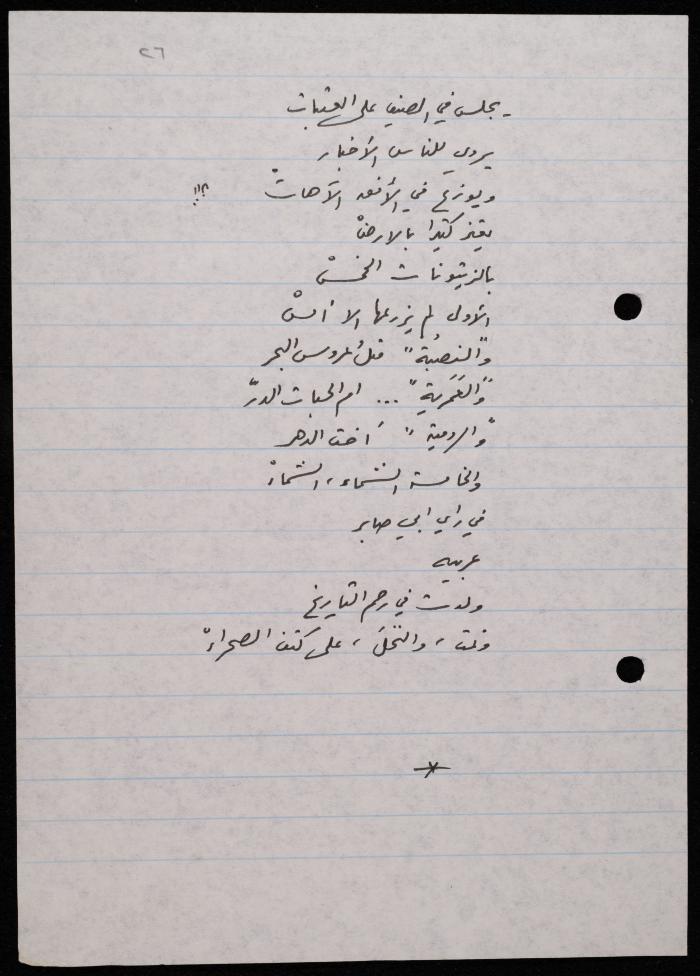 ٢٦
- يجلس في الصيف على العتبات
يروي للناس الأخبار
ويوزع في الأفق الآهاتْ ؟!!
يعتز كثيرا بالارضْ
بالزيتونات الخمسْ
الأولى لم يزرعها الا أمسْ
و"النصبة" قبل عروس البحر
و"العَمَرية" ... ام الحبات الدرّ
و"الرومية" أخت الدهر
والخامسة الشماء، الشماءْ
في راي ابي صابر
عربيه
ولدت في رحم التاريخ
ونمت، والنخلَ، على كتف الصحراءْ